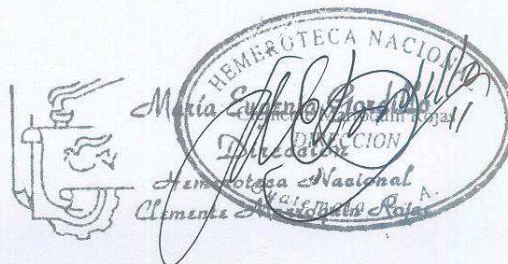 HEMEROTECA NACIONAL
Clemente Marroquín Rojas
DIRECCION
Guatemala, C. A.
María Eugenia Gordillo
Dirección
Hemeroteca Nacional
Clemente Marroquín Rojas